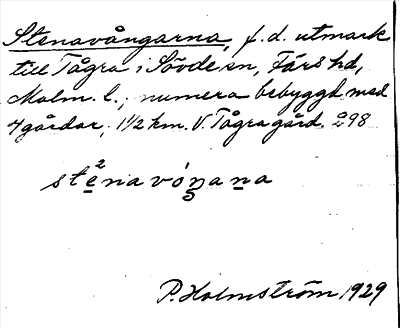 Stenavångarna, f.d. utmark
till Tågra i Sövde sn, Färs hd,
Malm. l.; numera bebyggd med
4 gårdar; 1½ km. V. Tågra gård. å98
ste²navóŋana
P. Holmström 1929